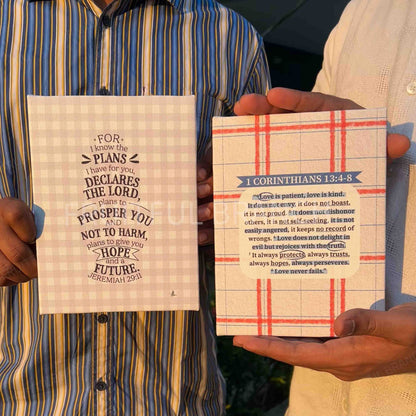 FOR
I know the
PLANS
I have for you,
DECLARES
THE LORD,
plans to
PROSPER YOU
AND
NOT TO HARM,
plans to give you
HOPE
and a
FUTURE.
JEREMIAH 29:11
1 CORINTHIANS 13:4-8
"Love is patient, love is kind.
It does not envy, it does not boast,
it is not proud. "It does not dishonor
others, it is not self-seeking, it is not
easily angered, it keeps no record of
wrongs. "Love does not delight in
evil but rejoices with the truth.
It always protects, always trusts,
always hopes, always perseveres.
"Love never fails."